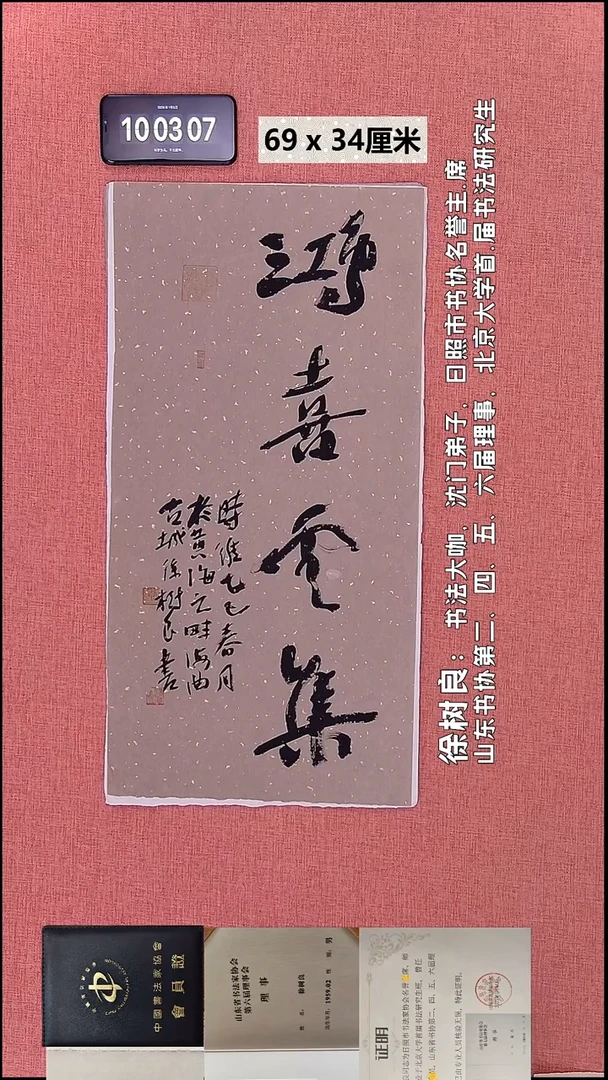 10 03 07
69 x 34厘米
鴻喜雲集
時維乙巳春月
於黃海之畔海曲
古城徐樹良書
徐树良：书法大咖，沈门弟子，日照市书协名誉主.席
山东书协第二、四、五、六届理事，北京大学首.届书法研究生
中國書法家協會
會員證
山东省书法家协会
第六届理事会
理事
姓名：徐树良 性别：男
出生年月：1959.02
证明